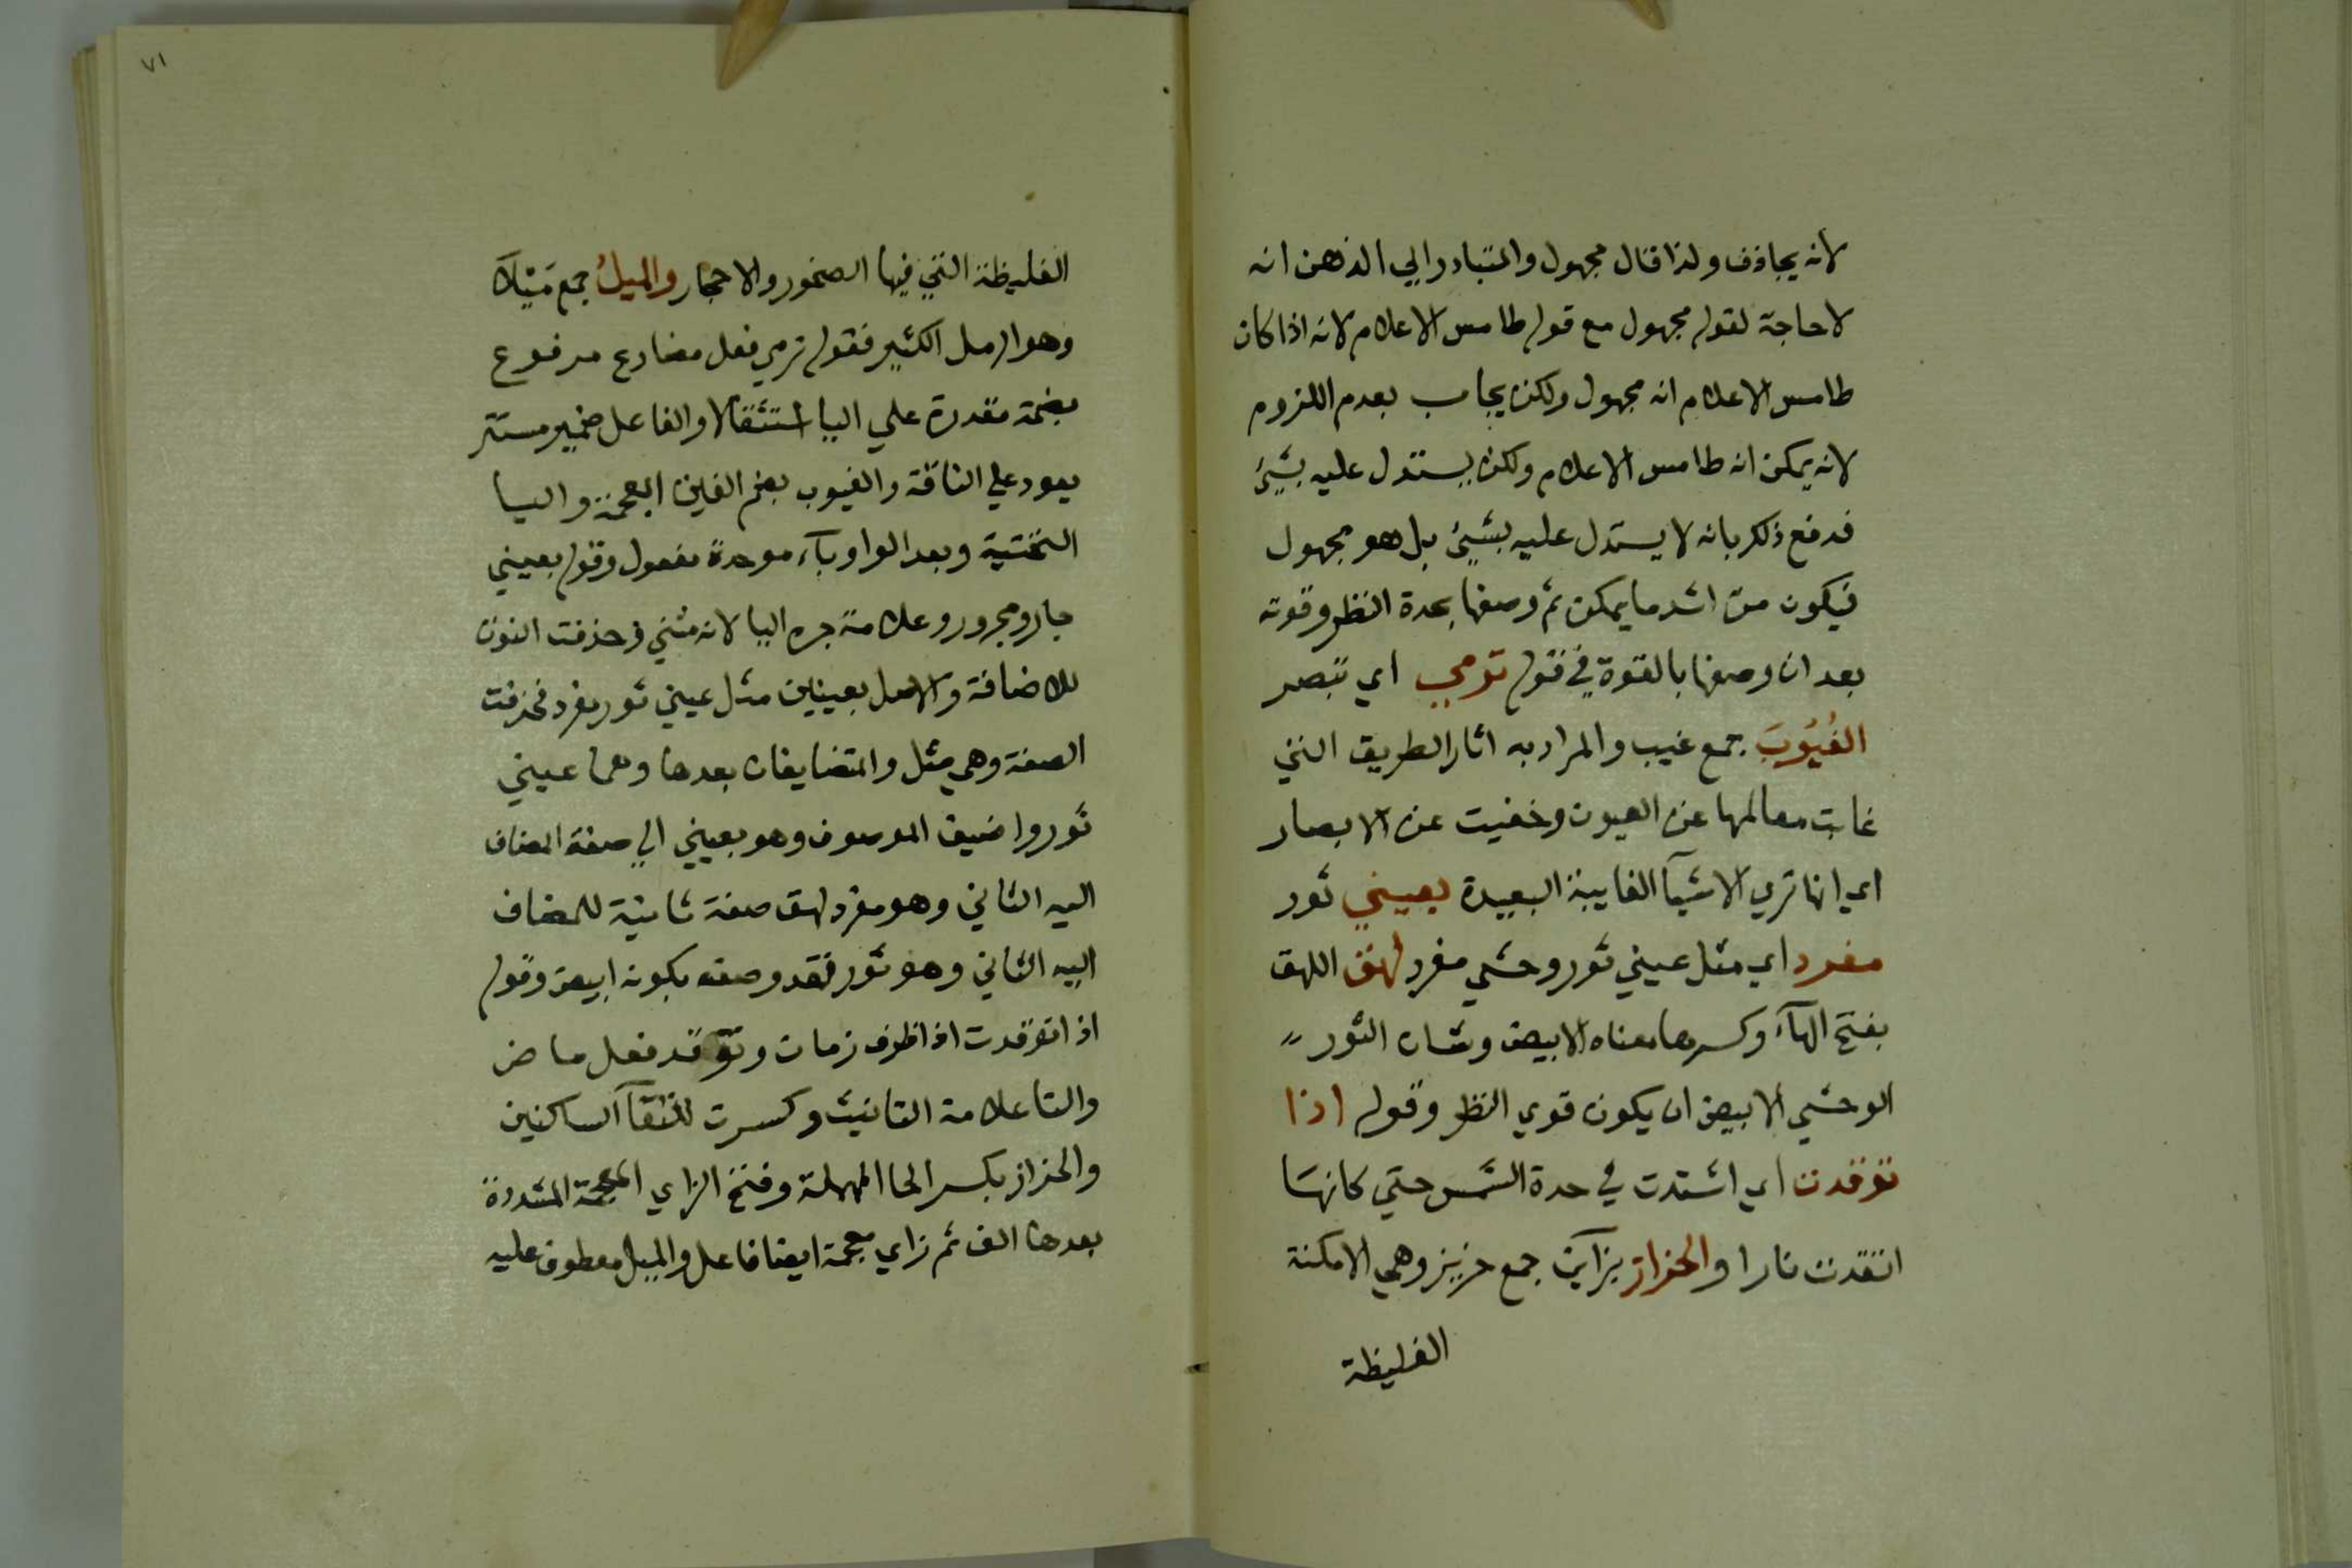 لانه يجازف ولذا قال مجهول والمتبادر الي الذهن انه
لا حاجة لقوله مجهول مع قوله طامس الاعلام لانه اذا كان
طامس الاعلام انه مجهول ولكن يجاب بعدم اللزوم
لانه يمكن انه طامس الاعلام ولكن يستدل عليه بشيئ
فدفع ذلك بانه لا يستدل عليه بشيئ بل هو مجهول
فيكون من اشد ما يمكن ثم وصفها بحدة النظر وقوته
بعد ان وصفها بالقوة في قوله ترمي اي تبصر
الغُيُوبَ جمع غيب والمراد به اثار الطريق التي
غابت معالمها عن العيون وخفيت عن الابصار
اي انها تري الاشيآ الغايبة البعيدة بعيني ثور
مفرد اي مثل عيني ثور وحشي مفرد لهق اللهق
بفتح الهآء وكسرها معناه الابيض وشان الثور
الوحشي الابيض ان يكون قوي النظر وقوله اذا
توقدت اي اشتدت في حدة الشمس حتي كانها
اتقدت نارا والحزاز بزآين جمع حزيز وهي الامكنة
الغليظة
٧١
الغليظة التي فيها الصخور والاحجار والميلُ جمع مَيْلآ
وهو الرمل الكثير فقوله ترمي فعل مضارع مرفوع
بضمة مقدرة علي اليا استثقالا والفاعل ضمير مستتر
يعود علي الناقة والغيوب بضم الغين المعجمة واليا
التحتية وبعد الواو بآء موحدة مفعول وقوله بعيني
جار ومجرور وعلامة جره اليا لانه مثني وحذفت النون
للاضافة والاصل بعينين مثل عيني ثور مفرد فحذفت
الصفة وهي مثل والمتضايفان بعدها وهما عيني
ثور واضيف الموصوف وهو بعيني الي صفة المضاف
اليه الثاني وهو مفرد لهق صفة ثانية للمضاف
اليه الثاني وهو ثور فقد وصفه بكونه ابيض وقوله
اذا توقدت اذا ظرف زمان وتوقد فعل ماض
والتا علامة التانيث وكسرت لالتقآ الساكنين
والحزاز بكسر الحا المهملة وفتح الزاي المعجمة المشددة
بعدها الف ثم زاي معجمة ايضا فاعل والميل معطوف عليه